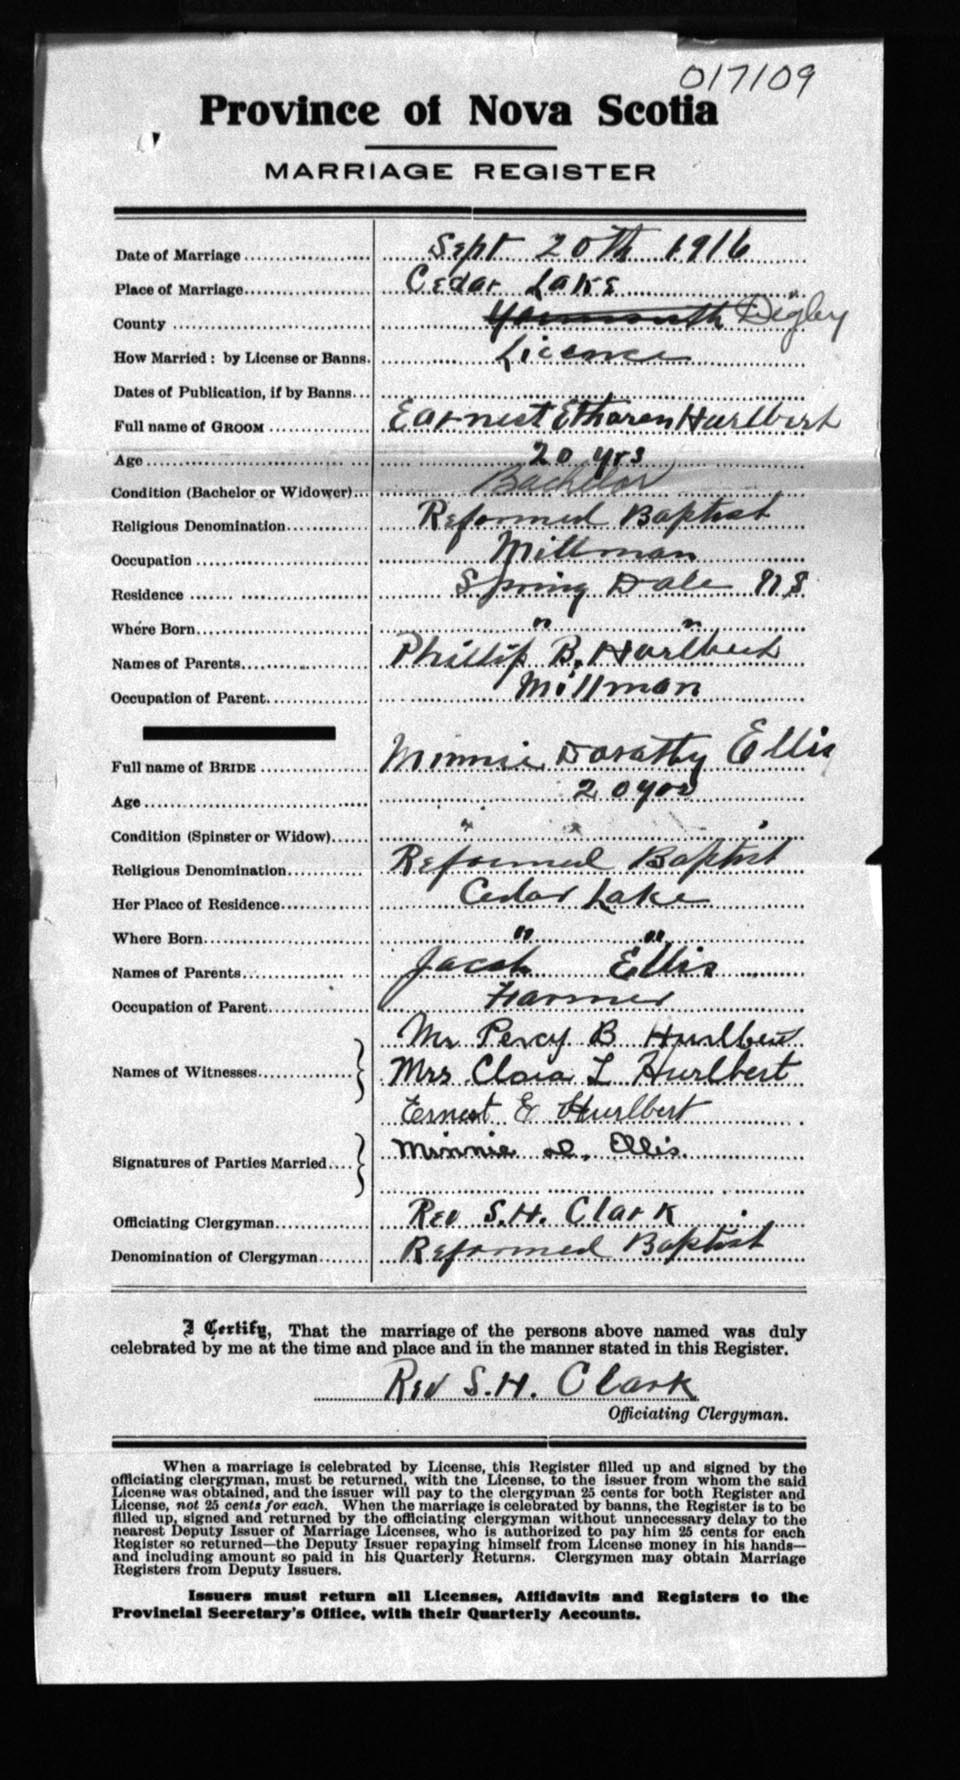 017109
Province of Nova Scotia
MARRIAGE REGISTER
Date of Marriage Sept 20th 1916
Place of Marriage Cedar Lake
County Yarmouth Digby
How Married: by License or Banns. Licence
Dates of Publication, if by Banns
Full name of GROOM Earnest Etharen Hurlbert
Age 20 yrs
Condition (Bachelor or Widower) Bachelor
Religious Denomination Reformed Baptist
Occupation Millman
Residence Spring Dale N S
Where Born " "
Names of Parents Phillip B. Hurlbert
Occupation of Parent Millman
Full name of BRIDE Minnie Dorathy Ellis
Age 20 yrs
Condition (Spinster or Widow) "
Religious Denomination Reformed Baptist
Her Place of Residence Cedar Lake
Where Born " "
Names of Parents Jacob Ellis
Occupation of Parent Farmer
Mr Percy B Hurlbert
Names of Witnesses Mrs Clara L Hurlbert
Ernest E Hurlbert
Signatures of Parties Married Minnie D. Ellis
Officiating Clergyman Rev S.H. Clark
Denomination of Clergyman Reformed Baptist
I Certify, That the marriage of the persons above named was duly
celebrated by me at the time and place and in the manner stated in this Register.
Rev S.H. Clark
Officiating Clergyman.
When a marriage is celebrated by License, this Register filled up and signed by the
officiating clergyman, must be returned, with the License, to the issuer from whom the said
License was obtained, and the issuer will pay to the clergyman 25 cents for both Register and
License, not 25 cents for each. When the marriage is celebrated by banns, the Register is to be
filled up, signed and returned by the officiating clergyman without unnecessary delay to the
nearest Deputy Issuer of Marriage Licenses, who is authorized to pay him 25 cents for each
Register so returned—the Deputy Issuer repaying himself from License money in his hands—
and including amount so paid in his Quarterly Returns. Clergymen may obtain Marriage
Registers from Deputy Issuers.
Issuers must return all Licenses, Affidavits and Registers to the
Provincial Secretary's Office, with their Quarterly Accounts.